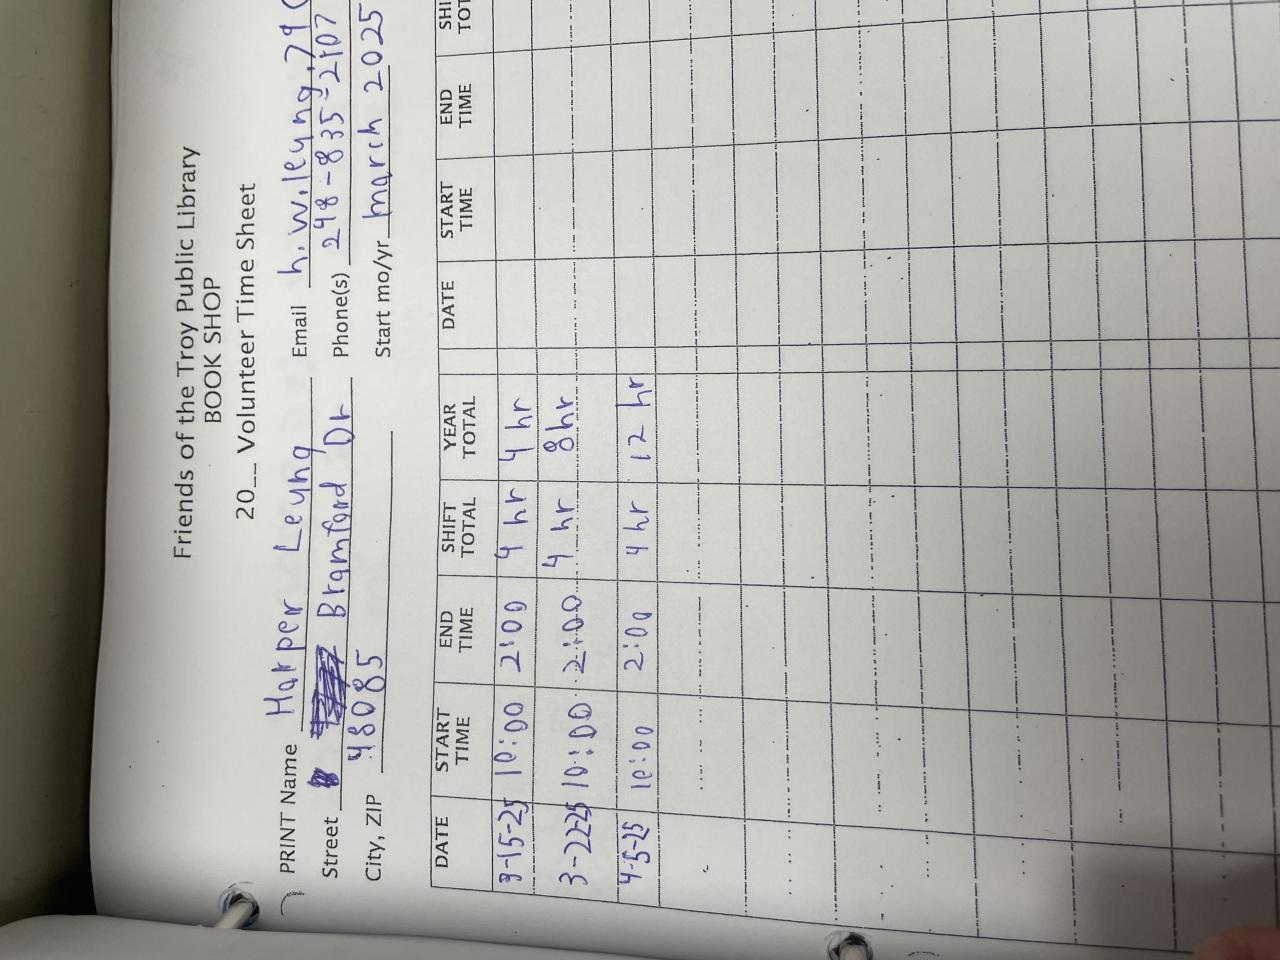 Friends of the Troy Public Library
BOOK SHOP
20__ Volunteer Time Sheet
PRINT Name Harper Leung Email h.w.leung.79
Street Bramford Dr Phone(s) 248-835-2107
City, ZIP 48085 Start mo/yr march 2025
DATE START TIME END TIME SHIFT TOTAL YEAR TOTAL DATE START TIME END TIME
3-15-25 10:00 2:00 4 hr 4 hr
3-22-25 10:00 2:00 4 hr 8hr
4-5-25 10:00 2:00 4 hr 12 hr